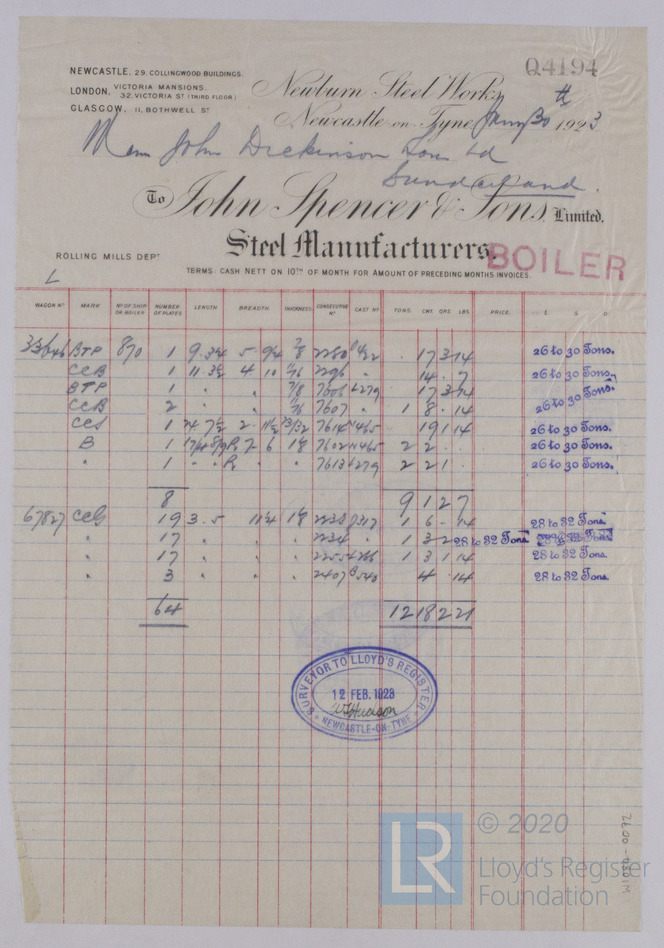 Q4194
NEWCASTLE, 29. COLLINGWOOD BUILDINGS.
LONDON, VICTORIA MANSIONS, 32, VICTORIA ST (THIRD FLOOR)
GLASGOW, 11, BOTHWELL ST
Newburn Steel Works
Newcastle-on-Tyne 30th 1923
John Dickinson Sons Ld
Sunderland.
To John Spencer & Sons, Limited.
Steel Manufacturers.
BOILER
ROLLING MILLS DEPT
TERMS: CASH NETT ON 10TH OF MONTH FOR AMOUNT OF PRECEDING MONTHS INVOICES.
L
WAGON No MARK No OF SHIP OR BOILER NUMBER OF PLATES LENGTH BREADTH THICKNESS CONSECUTIVE No CAST No TONS. CWT. QRS. LBS. PRICE. £ S D
BTP 870 1 5 7/8 17 3 14 26 to 30 Tons.
CCB 1 4 10 14 . 7 26 to 30 Tons.
BTP 1 " " 7/8 7606 17 3 14 26 to 30 Tons.
CCB 2 " " 7607 " 1 8 . 14 26 to 30 Tons.
CCS 1 2 7614 19 1 14 26 to 30 Tons.
B 1 6 7602 2 2 . . 26 to 30 Tons.
" 1 " " 7613 2 2 1 . 26 to 30 Tons.
8 9 12 7
67827 19 3.5 11 1/4 1 1/8 1 6 . 14 28 to 32 Tons.
" 17 " " " 2234 " 1 3 2 28 to 32 Tons.
" 17 " " " 1 3 1 14 28 to 32 Tons.
" 3 " " " 2407 4 . 14 28 to 32 Tons.
64 12 18 2 21
SURVEYOR TO LLOYD'S REGISTER
12 FEB. 1923
NEWCASTLE-ON-TYNE
LR © 2020
Lloyd's Register
Foundation
W1030-0072